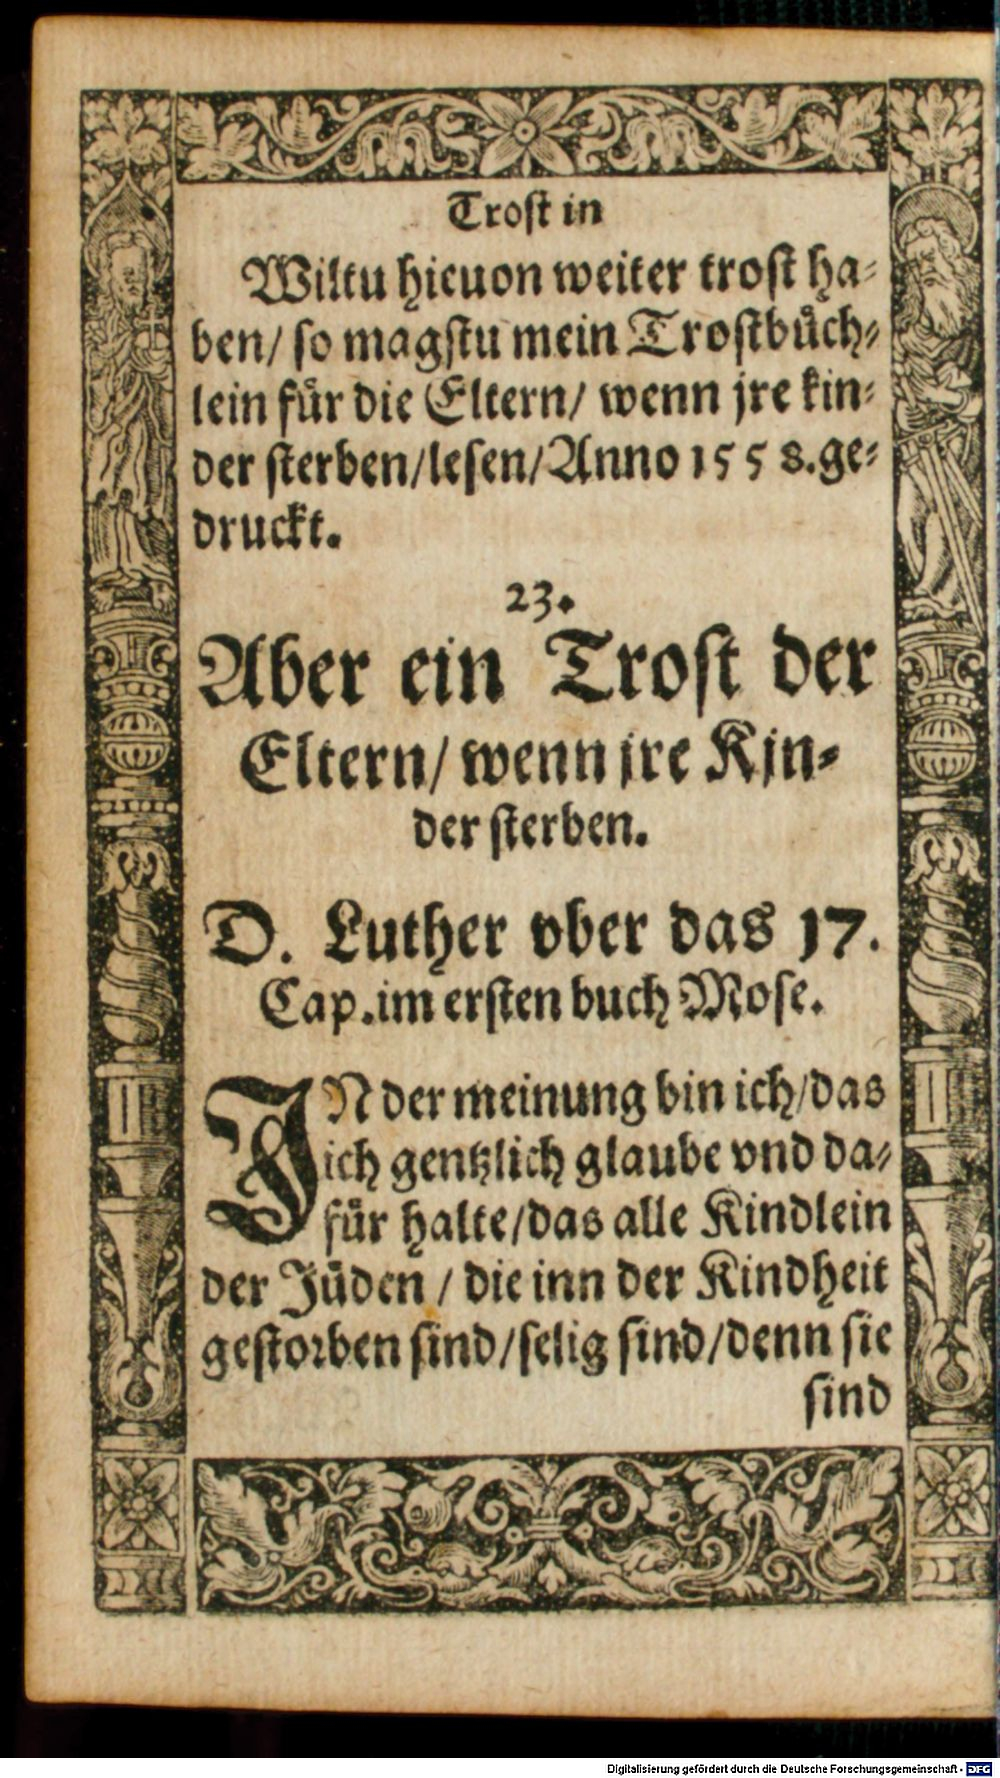 Trost in
Wiltu hieuon weiter trost ha⸗
ben/ so magstu mein Trostbuͤch⸗
lein fuͤr die Eltern/ wenn jre kin⸗
der sterben/lesen/Anno 1558.ge⸗
druckt.
23.
Aber ein Trost der
Eltern/ wenn jre Kin⸗
der sterben.
D. Luther vber das 17.
Cap.im ersten buch Mose.
IN der meinung bin ich/das
ich gentzlich glaube vnd da⸗
fuͤr halte/das alle Kindlein
der Juͤden / die inn der Kindheit
gestorben sind/selig sind/denn sie
sind
Digitalisierung gefördert durch die Deutsche Forschungsgemeinschaft - DFG